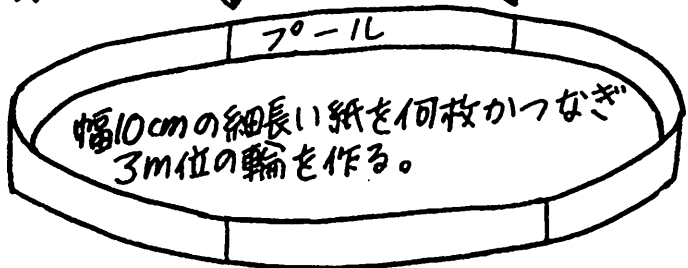 プール
幅10cmの細長い紙を何枚かつなぎ
3m位の輪を作る。